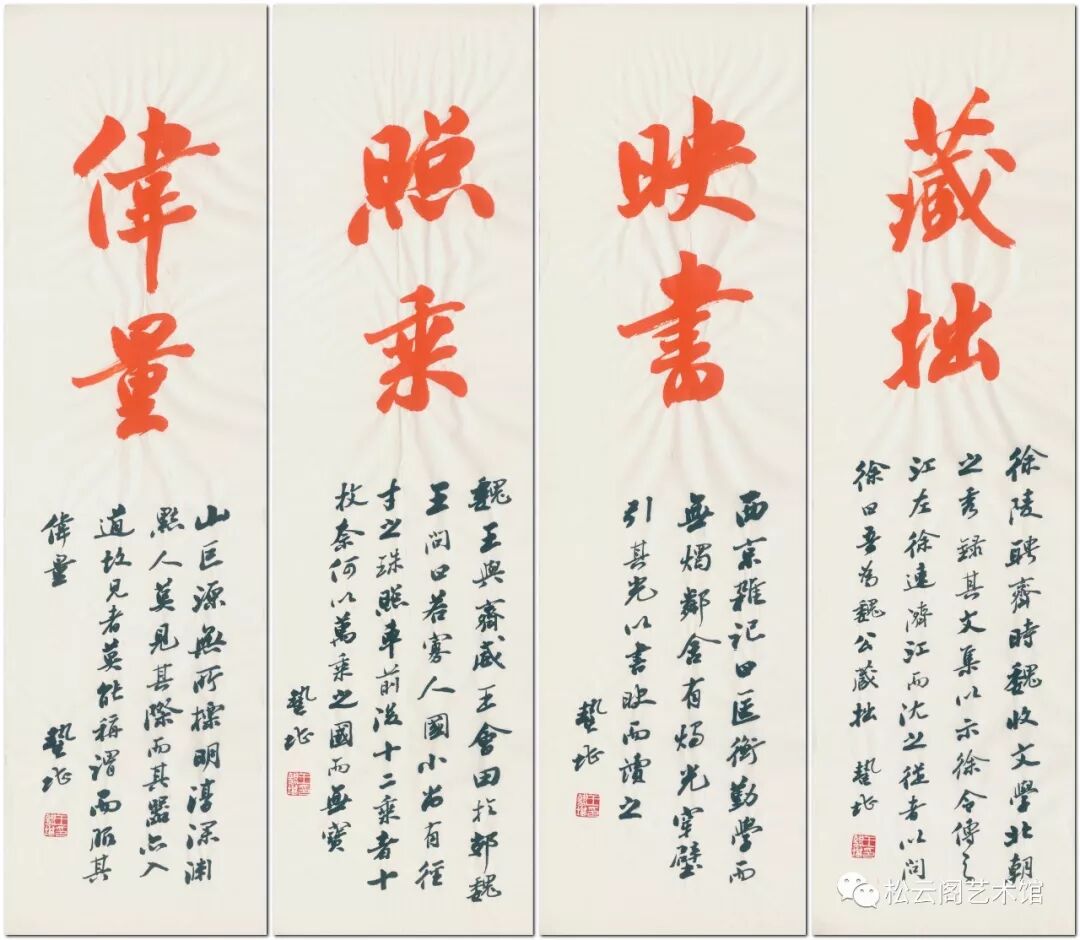 藏拙
徐陵聘齊時魏收文學北朝
之秀録其文集以示徐令傳之
江左徐速濟江而沈之從者以問
徐曰吾為魏公藏拙
蟄堪
映書
西京雜記曰匡衡勤學而
無燭鄰舍有燭光穿壁
引其光以書映而讀之
蟄堪
照乘
魏王與齊威王會田於郊魏
王問曰若寡人國小尚有徑
寸之珠照車前後十二乘者十
枚奈何以萬乘之國而無寶
蟄堪
偉量
山巨源無所標明淳深淵
默人莫見其際而其器亦入
道故見者莫能稱謂而服其
偉量
蟄堪
松云阁艺术馆